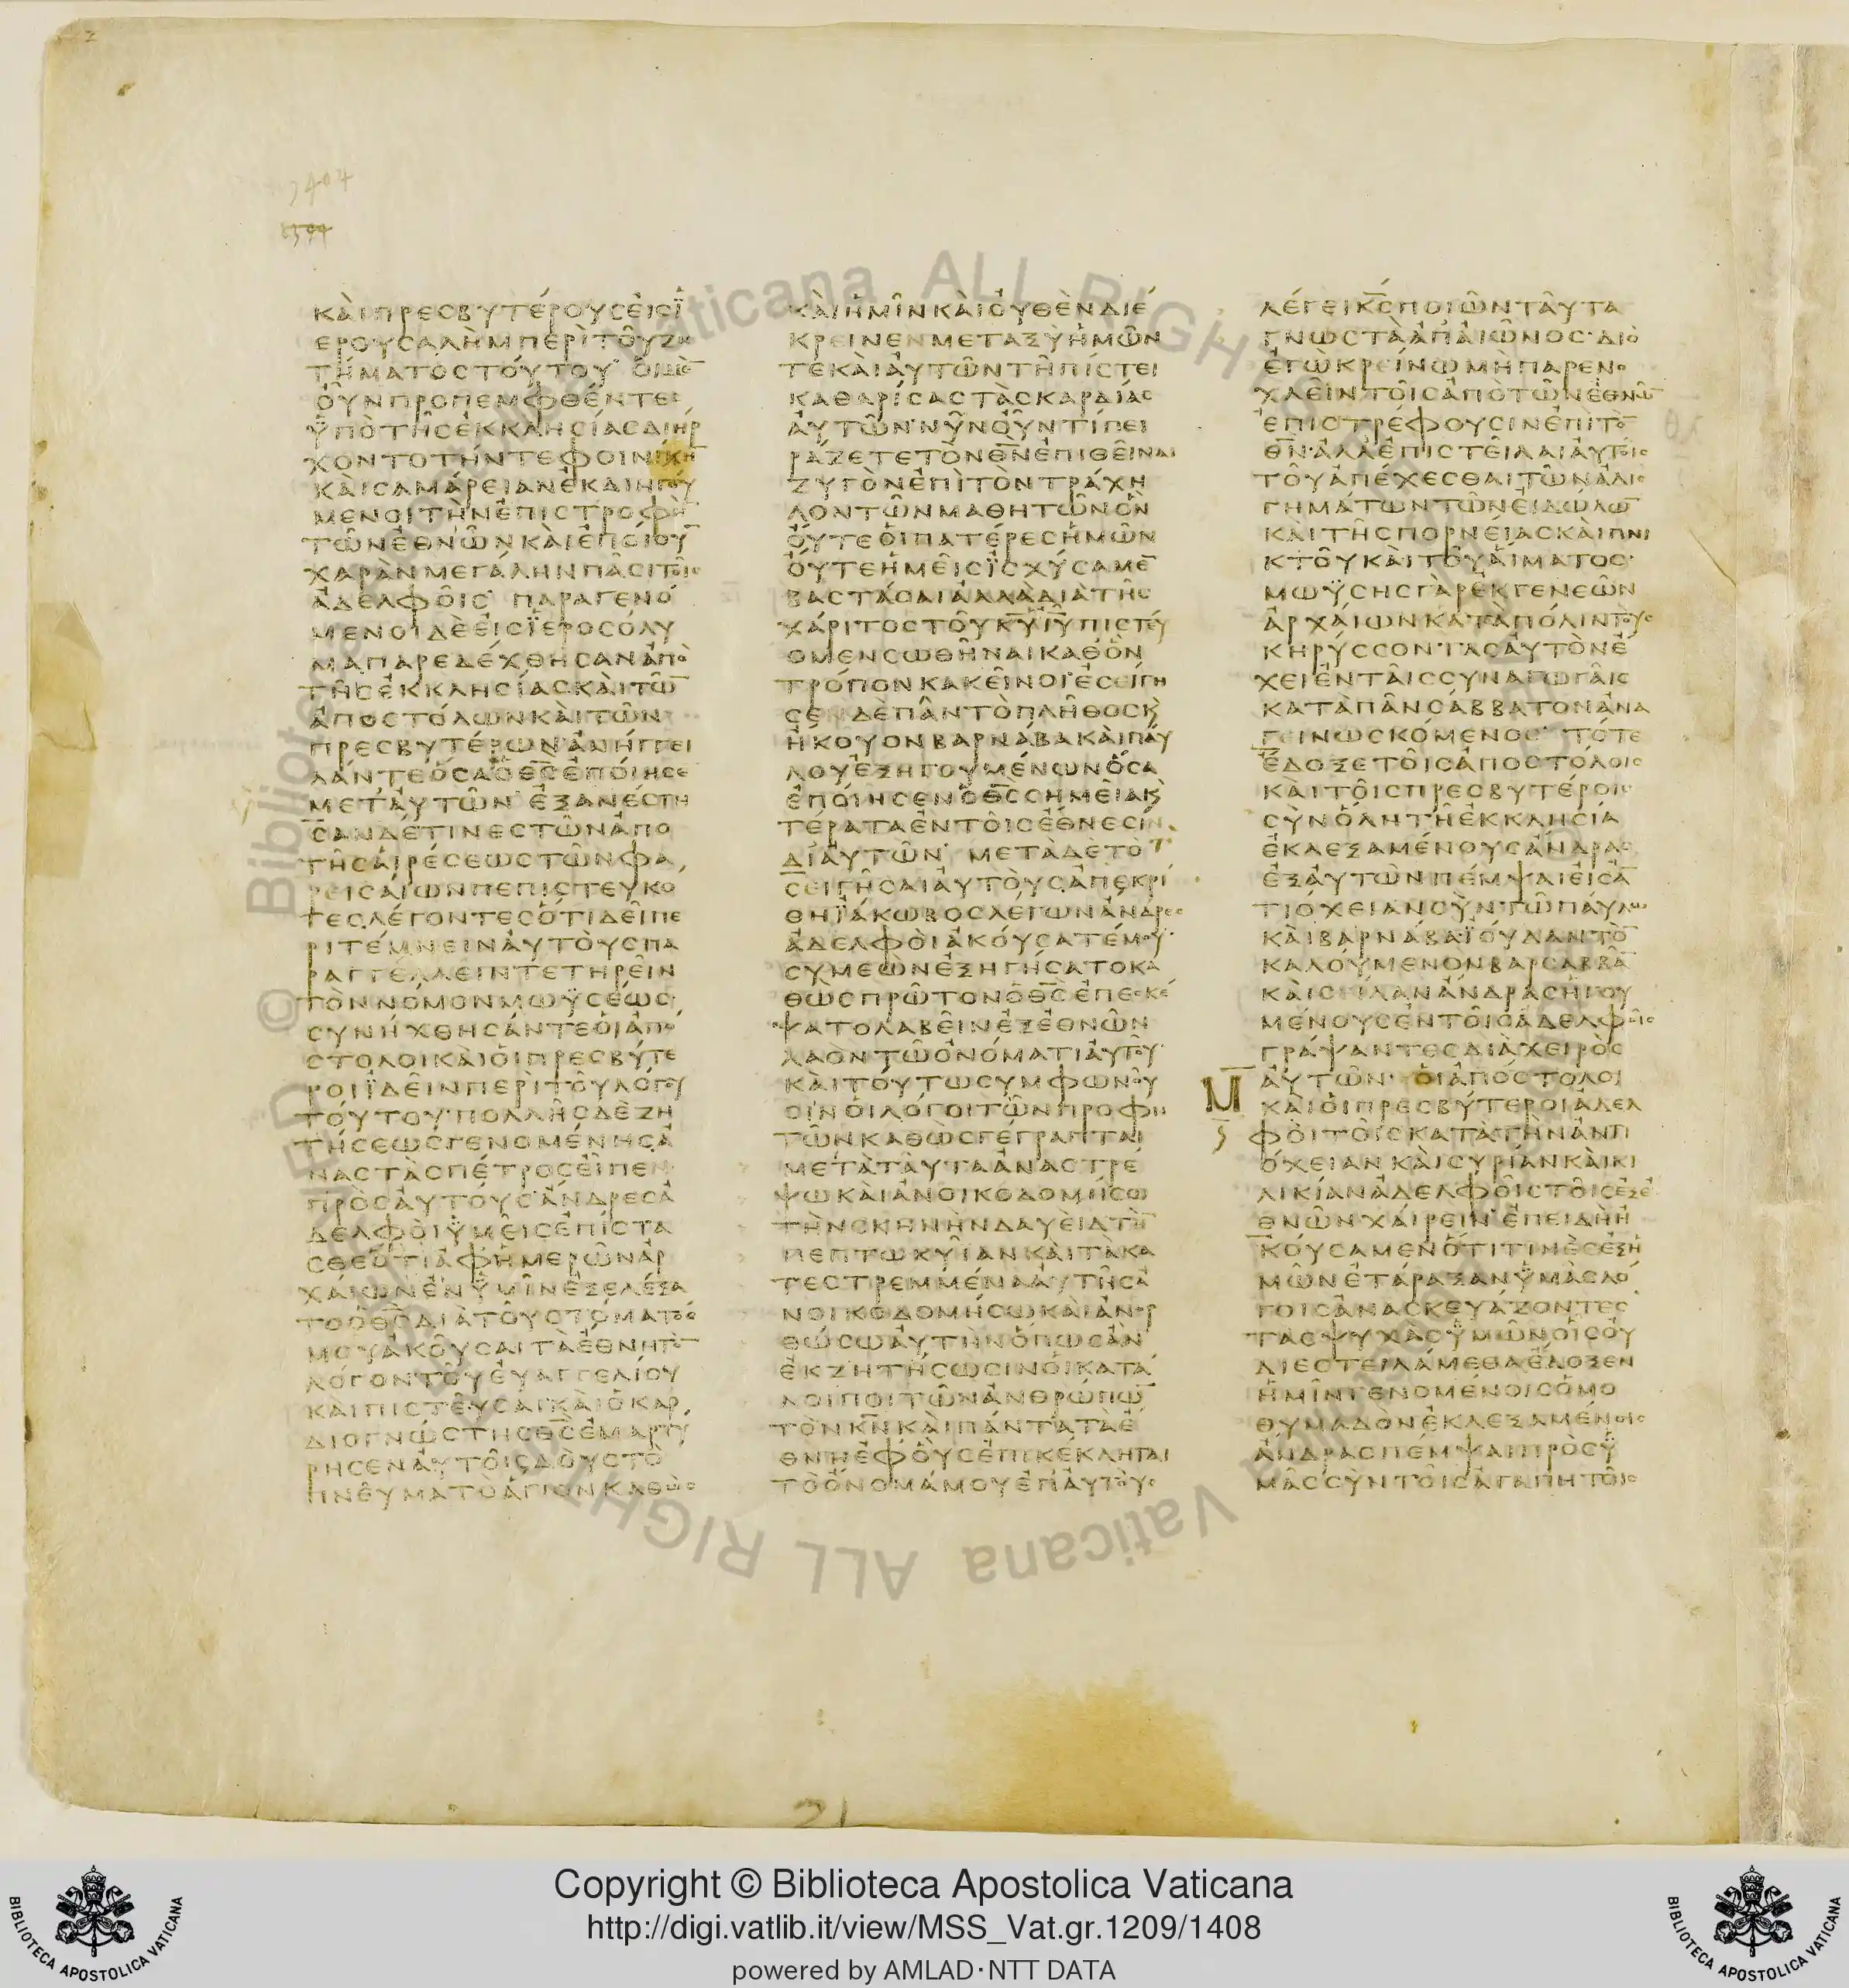 ⲕⲁⲓ
ΚΑΙΠΡΕСΒΥΤΕΡΟΥСΕΙСΪ
ΕΡΟΥСΑΛΗΜΠΕΡΙΤΟΥΖΗ
ΤΗΜΑΤΟСΤΟΥΤΟΥ ΟΙΜΕ̅
ΟΥΝΠΡΟΠΕΜΦΘΕΝΤΕС
ΫΠΟΤΗСΕΚΚΛΗСΙΑСΔΙΗΡ
ΧΟΝΤΟΤΗΝΤΕΦΟΙΝΙΚΗ̅
ΚΑΙСΑΜΑΡΕΙΑΝΕΚΔΙΗΓΟΥ
ΜΕΝΟΙΤΗΝΕΠΙСΤΡΟΦΗ̅
ΤΩΝΕΘΝΩΝΚΑΙΕΠΟΙΟΥ̅
ΧΑΡΑΝΜΕΓΑΛΗΝΠΑСΙΤΟΙС
ΑΔΕΛΦΟΙС ΠΑΡΑΓΕΝΟ
ΜΕΝΟΙΔΕΕΙСΪΕΡΟСΟΛΥ
ΜΑΠΑΡΕΔΕΧΘΗСΑΝΑΠΟ
ΤΗСΕΚΚΛΗСΙΑСΚΑΙΤΩ̅
ΑΠΟСΤΟΛΩΝΚΑΙΤΩΝ
ΠΡΕСΒΥΤΕΡΩΝΑΝΗΓΓΕΙ
ΛΑΝΤΕΟСΑΟΘ̅С̅ΕΠΟΙΗСΕ
ΜΕΤΑΥΤΩΝ ΕΞΑΝΕСΤΗ
СΑΝΔΕΤΙΝΕСΤΩΝΑΠΟ
ΤΗСΑΙΡΕСΕΩСΤΩΝΦΑ
ΡΕΙСΑΙΩΝΠΕΠΙСΤΕΥΚΟ
ΤΕСΛΕΓΟΝΤΕСΟΤΙΔΕΙΠΕ
ΡΙΤΕΜΝΕΙΝΑΥΤΟΥСΠΑ
ΡΑΓΓΕΛΛΕΙΝΤΕΤΗΡΕΙΝ
ΤΟΝΝΟΜΟΝΜΩΫСΕΩС
СΥΝΗΧΘΗСΑΝΤΕΟΙΑΠΟ
СΤΟΛΟΙΚΑΙΟΙΠΡΕСΒΥΤΕ
ΡΟΙΪΔΕΙΝΠΕΡΙΤΟΥΛΟΓΟΥ
ΤΟΥΤΟΥ ΠΟΛΛΗСΔΕΖΗ
ΤΗСΕΩСΓΕΝΟΜΕΝΗСΑ
ΝΑСΤΑСΠΕΤΡΟСΕΙΠΕΝ
ΠΡΟСΑΥΤΟΥС ΑΝΔΡΕСΑ
ΔΕΛΦΟΙΫΜΕΙСΕΠΙСΤΑ
СΘΕΟΤΙΑΦΗΜΕΡΩΝΑΡ
ΧΑΙΩΝΕΝΫΜΙΝΕΞΕΛΕΞΑ
ΤΟΟΘ̅С̅ΔΙΑΤΟΥСΤΟΜΑΤΟС
ΜΟΥΑΚΟΥСΑΙΤΑΕΘΝΗΤΟ̅
ΛΟΓΟΝΤΟΥΕΥΑΓΓΕΛΙΟΥ
ΚΑΙΠΙСΤΕΥСΑΙ ΚΑΙΟΚΑΡ
ΔΙΟΓΝΩСΤΗСΘ̅С̅ΕΜΑΡΤΥ
ΡΗСΕΝΑΥΤΟΙСΔΟΥСΤΟ
ΠΝΕΥΜΑΤΟΑΓΙΟΝΚΑΘΩС
ΚΑΙΗΜΙΝΚΑΙΟΥΘΕΝΔΙΕ
ΚΡΕΙΝΕΝΜΕΤΑΞΥΗΜΩΝ
ΤΕΚΑΙΑΥΤΩΝΤΗΠΙСΤΕΙ
ΚΑΘΑΡΙСΑСΤΑСΚΑΡΔΙΑС
ΑΥΤΩΝ ΝΥΝΟΥΝΤΙΠΕΙ
ΡΑΖΕΤΕΤΟΝΘ̅Ν̅ΕΠΙΘΕΙΝΑΙ
ΖΥΓΟΝΕΠΙΤΟΝΤΡΑΧΗ
ΛΟΝΤΩΝΜΑΘΗΤΩΝΟΝ
ΟΥΤΕΟΙΠΑΤΕΡΕСΗΜΩΝ
ΟΥΤΕΗΜΕΙСΪСΧΥСΑΜΕ̅
ΒΑСΤΑСΑΙΑΛΛΑΔΙΑΤΗС
ΧΑΡΙΤΟСΤΟΥΚ̅Υ̅Ι̅Υ̅ΠΙСΤΕΥ
ΟΜΕΝСΩΘΗΝΑΙΚΑΘΟΝ
ΤΡΟΠΟΝΚΑΚΕΙΝΟΙ ΕСΕΙΓΗ
СΕΝΔΕΠΑΝΤΟΠΛΗΘΟСΚ
ΗΚΟΥΟΝΒΑΡΝΑΒΑΚΑΙΠΑΥ
ΛΟΥΕΞΗΓΟΥΜΕΝΩΝΟСΑ
ΕΠΟΙΗСΕΝΟΘ̅С̅СΗΜΕΙΑΚ
ΤΕΡΑΤΑΕΝΤΟΙСΕΘΝΕСΙΝ
ΔΙΑΥΤΩΝ ΜΕΤΑΔΕΤΟ
СΕΙΓΗСΑΙΑΥΤΟΥСΑΠΕΚΡΙ
ΘΗΪΑΚΩΒΟСΛΕΓΩΝΑΝΔΡΕС
ΑΔΕΛΦΟΙΑΚΟΥСΑΤΕΜΟΥ
СΥΜΕΩΝΕΞΗΓΗСΑΤΟΚΑ
ΘΩСΠΡΩΤΟΝΟΘ̅С̅ΕΠΕСΚΕ
ΨΑΤΟΛΑΒΕΙΝΕΞΕΘΝΩΝ
ΛΑΟΝΤΩΟΝΟΜΑΤΙΑΥΤΟΥ
ΚΑΙΤΟΥΤΩСΥΜΦΩΝΟΥ
СΙΝΟΙΛΟΓΟΙΤΩΝΠΡΟΦΗ
ΤΩΝΚΑΘΩСΓΕΓΡΑΠΤΑΙ
ΜΕΤΑΤΑΥΤΑΑΝΑСΤΡΕ
ΨΩΚΑΙΑΝΟΙΚΟΔΟΜΗСΩ
ΤΗΝСΚΗΝΗΝΔΑΥΕΙΔΤΗ̅
ΠΕΠΤΩΚΥΙΑΝΚΑΙΤΑΚΑ
ΤΕСΤΡΕΜΜΕΝΑΑΥΤΗСΑ
ΝΟΙΚΟΔΟΜΗСΩΚΑΙΑΝΟΡ
ΘΩСΩΑΥΤΗΝΟΠΩСΑΝ
ΕΚΖΗΤΗСΩСΙΝΟΙΚΑΤΑ
ΛΟΙΠΟΙΤΩΝΑΝΘΡΩΠΩ̅
ΤΟΝΚ̅Ν̅ΚΑΙΠΑΝΤΑΤΑΕ
ΘΝΗΕΦΟΥСΕΠΙΚΕΚΛΗΤΑΙ
ΤΟΟΝΟΜΑΜΟΥΕΠΑΥΤΟΥС
ΛΕΓΕΙΚ̅С̅ΠΟΙΩΝΤΑΥΤΑ
ΓΝΩСΤΑΑΠΑΙΩΝΟС ΔΙΟ
ΕΓΩΚΡΕΙΝΩΜΗΠΑΡΕΝΟ
ΧΛΕΙΝΤΟΙСΑΠΟΤΩΝΕΘΝΩ̅
ΕΠΙСΤΡΕΦΟΥСΙΝΕΠΙΤΟ̅
Θ̅Ν̅ ΑΛΛΑΕΠΙСΤΕΙΛΑΙΑΥΤΟΙС
ΤΟΥΑΠΕΧΕСΘΑΙΤΩΝΑΛΙС
ΓΗΜΑΤΩΝΤΩΝΕΙΔΩΛΩ̅
ΚΑΙΤΗСΠΟΡΝΕΙΑСΚΑΙΠΝΙ
ΚΤΟΥΚΑΙΤΟΥΑΙΜΑΤΟС
ΜΩΫСΗСΓΑΡΕΚΓΕΝΕΩΝ
ΑΡΧΑΙΩΝΚΑΤΑΠΟΛΙΝΤΟΥС
ΚΗΡΥССΟΝΤΑСΑΥΤΟΝΕ
ΧΕΙΕΝΤΑΙССΥΝΑΓΩΓΑΙС
ΚΑΤΑΠΑΝСΑΒΒΑΤΟΝΑΝΑ
ΓΕΙΝΩСΚΟΜΕΝΟС ΤΟΤΕ
ΕΔΟΞΕΤΟΙСΑΠΟСΤΟΛΟΙС
ΚΑΙΤΟΙСΠΡΕСΒΥΤΕΡΟΙС
СΥΝΟΛΗΤΗΕΚΚΛΗСΙΑ
ΕΚΛΕΞΑΜΕΝΟΥСΑΝΔΡΑС
ΕΞΑΥΤΩΝΠΕΜΨΑΙΕΙСΑ̅
ΤΙΟΧΕΙΑΝСΥΝΤΩΠΑΥΛΩ
ΚΑΙΒΑΡΝΑΒΑΪΟΥΔΑΝΤΟ̅
ΚΑΛΟΥΜΕΝΟΝΒΑΡСΑΒΒΑ̅
ΚΑΙСΕΙΛΑΝΑΝΔΡΑСΗΓΟΥ
ΜΕΝΟΥСΕΝΤΟΙСΑΔΕΛΦΟΙС
ΓΡΑΨΑΝΤΕСΔΙΑΧΕΙΡΟС
ΑΥΤΩΝ ΟΙΑΠΟСΤΟΛΟΙ
ΚΑΙΟΙΠΡΕСΒΥΤΕΡΟΙΑΔΕΛ
ΦΟΙΤΟΙСΚΑΤΑΤΗΝΑΝΤΙ
ΟΧΕΙΑΝΚΑΙСΥΡΙΑΝΚΑΙΚΙ
ΛΙΚΙΑΝΑΔΕΛΦΟΙСΤΟΙСΕΞΕ
ΘΝΩΝΧΑΙΡΕΙΝ ΕΠΕΙΔΗΗ
ΚΟΥСΑΜΕΝΟΤΙΤΙΝΕСΕΞΗ
ΜΩΝΕΤΑΡΑΞΑΝΫΜΑСΛΟ
ΓΟΙСΑΝΑСΚΕΥΑΖΟΝΤΕС
ΤΑСΨΥΧΑСΫΜΩΝΟΙСΟΥ
ΔΙΕСΤΕΙΛΑΜΕΘΑΕΔΟΞΕΝ
ΗΜΙΝΓΕΝΟΜΕΝΟΙСΟΜΟ
ΘΥΜΑΔΟΝΕΚΛΕΞΑΜΕΝΟΙС
ΑΝΔΡΑСΠΕΜΨΑΙΠΡΟСΫ
ΜΑССΥΝΤΟΙСΑΓΑΠΗΤΟΙС
21
Copyright © Biblioteca Apostolica Vaticana
http://digi.vatlib.it/view/MSS_Vat.gr.1209/1408
powered by AMLAD·NTT DATA
BIBLIOTECA APOSTOLICA VATICANA
BIBLIOTECA APOSTOLICA VATICANA